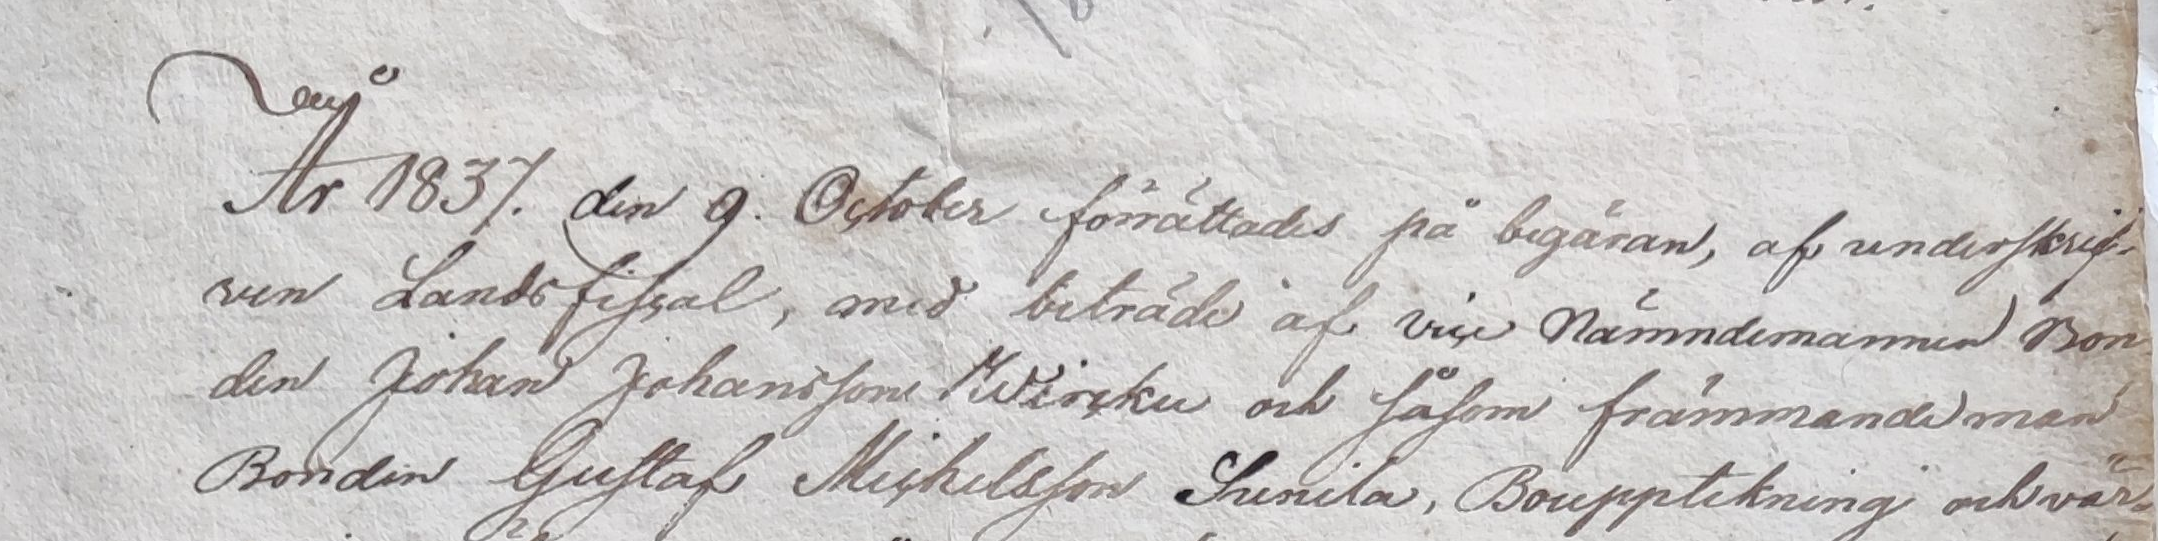 År 1837. den 9. October förrättades på begäran, af underskrif-
ven Landsfiscal, med biträde af vice Nämndemannen Bon
den Johan Johansson Wircku och såsom främmande man
Bonden Gustaf Michelsson Sunila, Boupptekning och vär-